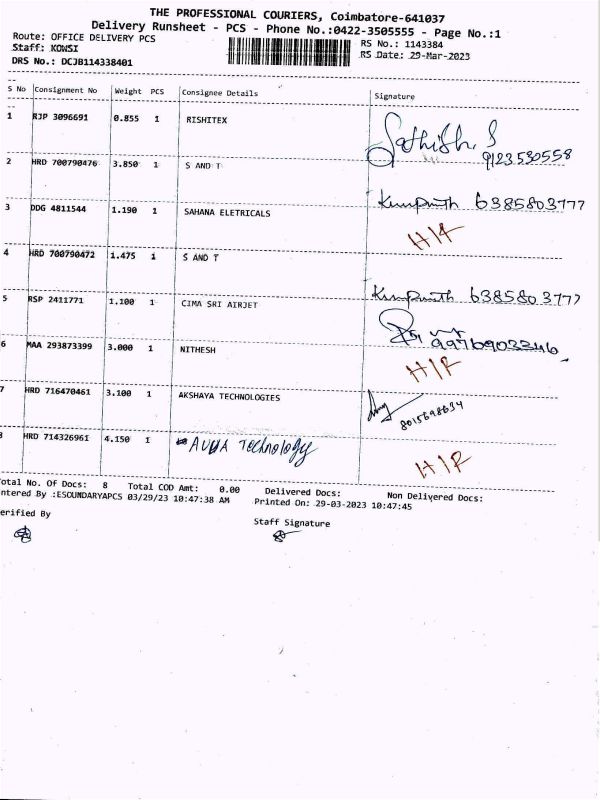 THE PROFESSIONAL COURIERS, Coimbatore-641037
Delivery Runsheet - PCS - Phone No.:0422-3505555 - Page No.:1
Route: OFFICE DELIVERY PCS RS No.: 1143384
Staff: KOWSI RS Date: 29-Mar-2023
DRS No.: DCJB114338401
S No Consignment No Weight PCS Consignee Details Signature
1 RJP 3096691 0.855 1 RISHITEX Sathish. S
9123530558
2 HRD 700790476 3.850 1 S AND T
6385803777
3 DDG 4811544 1.190 1 SAHANA ELETRICALS
H/R
4 HRD 700790472 1.475 1 S AND T
6385803777
5 RSP 2411771 1.100 1 CIMA SRI AIRJET
9976903346
6 MAA 293873399 3.000 1 NITHESH
H/R
7 HRD 716470461 3.100 1 AKSHAYA TECHNOLOGIES
8015698634
HRD 714326961 4.150 1 Technology
H/R
otal No. Of Docs: 8 Total COD Amt: 0.00 Delivered Docs: Non Delivered Docs:
ntered By :ESOUNDARYAPCS 03/29/23 10:47:38 AM Printed On: 29-03-2023 10:47:45
erified By Staff Signature